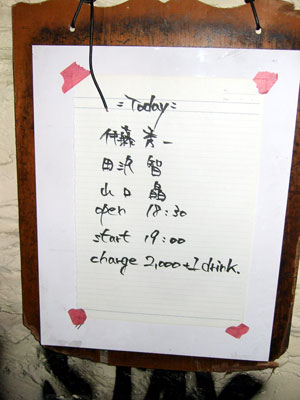 =Today=
伊藤秀一
田沢 智
山口 晶
open 18:30
start 19:00
charge 2,000+1drink.